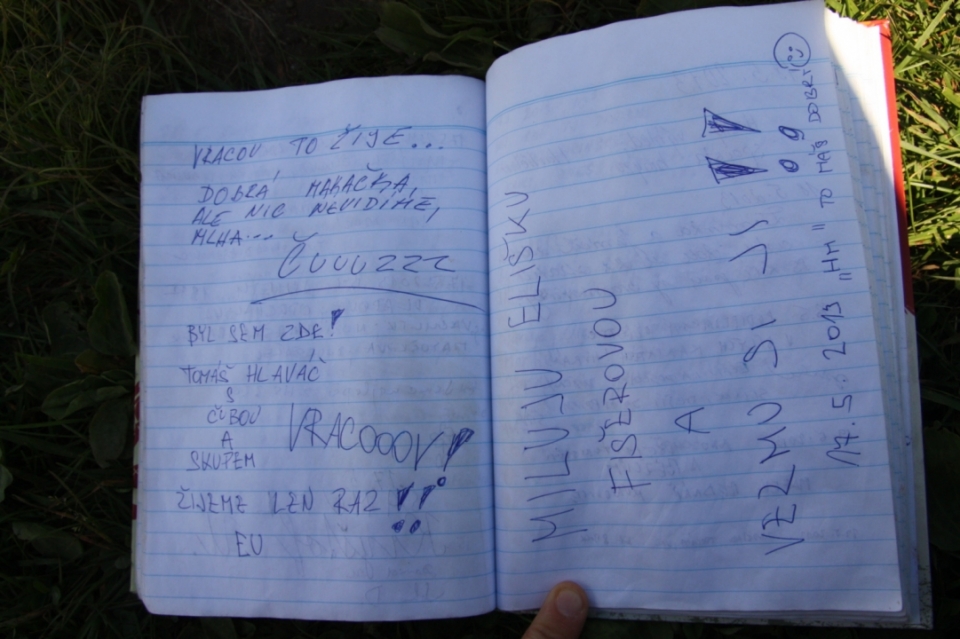 VRACOV TO ŽIJE...
DOBRÁ MAKAČKA,
ALE NIC NEVIDÍME,
MLHA...
ČUUUZZZ
BYL SEM ZDE!
TOMÁŠ HLAVÁČ
S
ČUBOU
A
SKUPEM
VRACOOOV!
ŽIJEME LEN RAZ !!
EU
MILUJU ELIŠKU
FIŠEROVOU
A
VEZMU SI JI !!
17.5. 2013 „HM" TO MÁŠ DOBRÝ